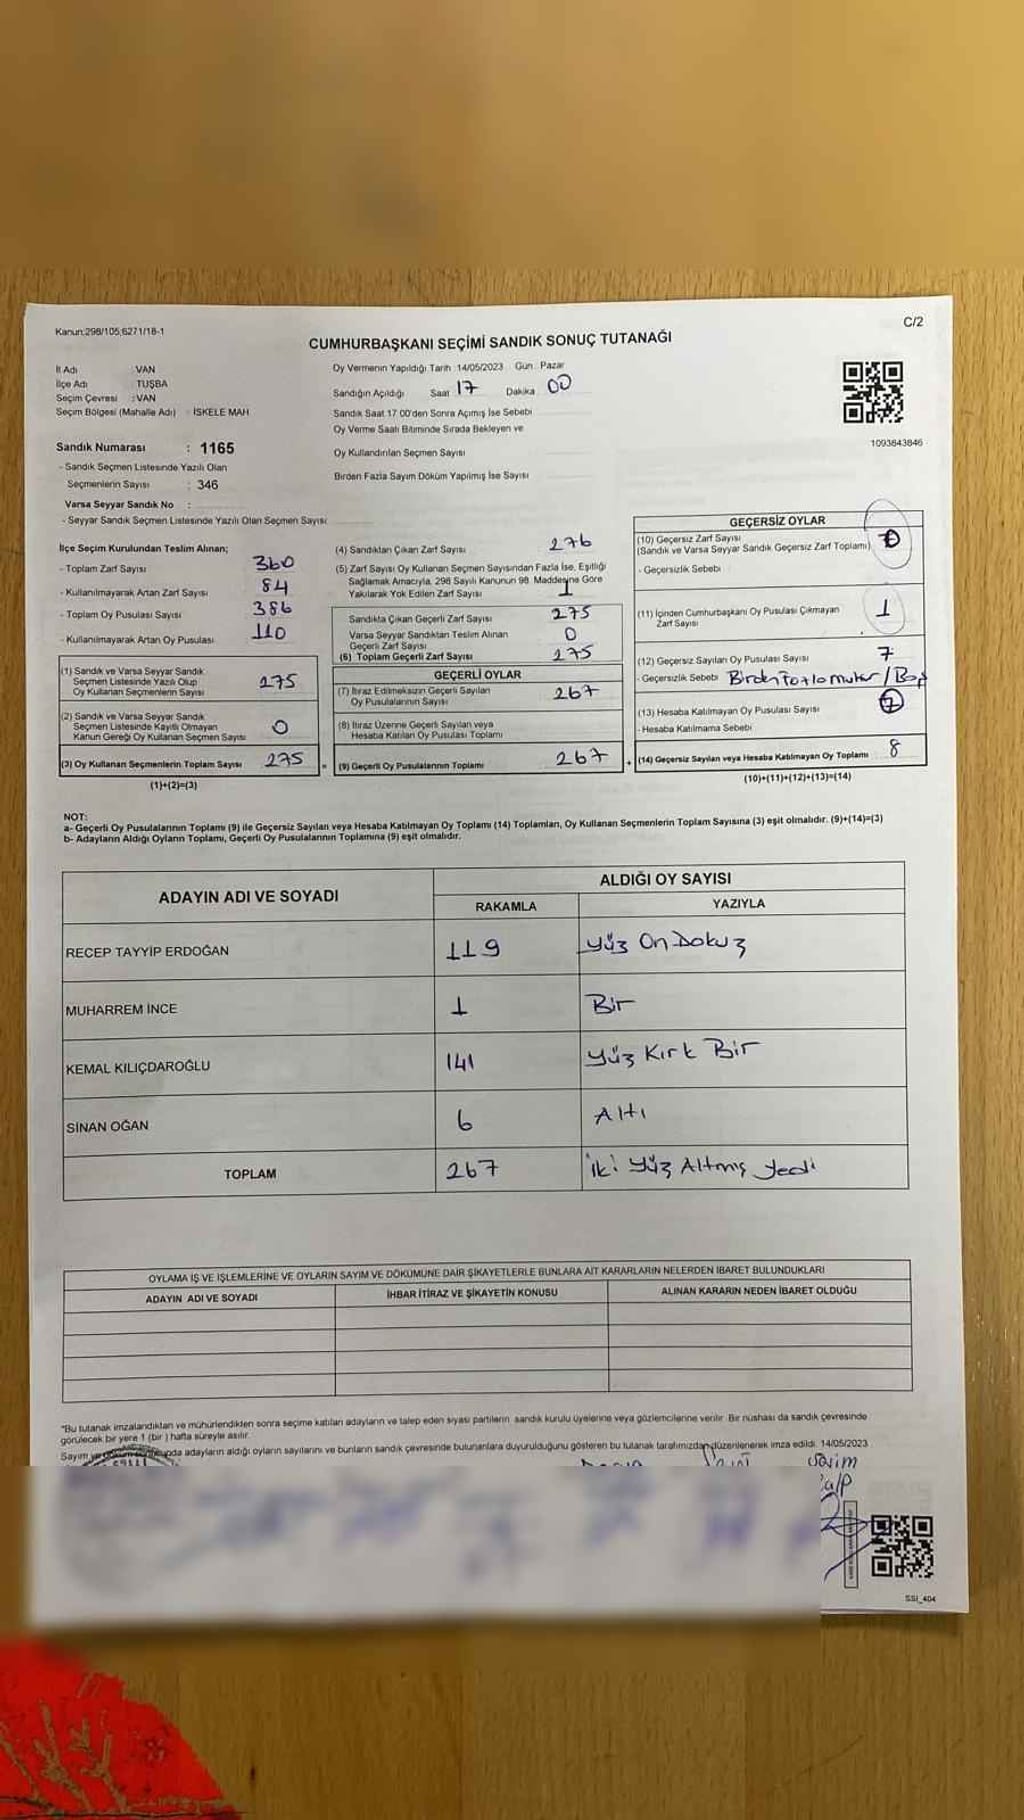 Kanun:298/105,6271/18-1
C/2
CUMHURBAŞKANI SEÇİMİ SANDIK SONUÇ TUTANAĞI
İl Adı : VAN
İlçe Adı : TUŞBA
Seçim Çevresi : VAN
Seçim Bölgesi (Mahalle Adı) : İSKELE MAH
Oy Vermenin Yapıldığı Tarih 14/05/2023 Gün Pazar
Sandığın Açıldığı Saat 17 Dakika 00
Sandık Saat 17 00'den Sonra Açımış İse Sebebi
Oy Verme Saati Bitiminde Sırada Bekleyen ve
Oy Kullandırılan Seçmen Sayısı
Birden Fazla Sayım Döküm Yapılmış İse Sayısı
1093843846
Sandık Numarası : 1165
- Sandık Seçmen Listesinde Yazılı Olan
Seçmenlerin Sayısı : 346
Varsa Seyyar Sandık No :
- Seyyar Sandık Seçmen Listesinde Yazılı Olan Seçmen Sayısı
İlçe Seçim Kurulundan Teslim Alınan;
- Toplam Zarf Sayısı 360
- Kullanılmayarak Artan Zarf Sayısı 84
- Toplam Oy Pusulası Sayısı 386
- Kullanılmayarak Artan Oy Pusulası 110
(1) Sandık ve Varsa Seyyar Sandık
Seçmen Listesinde Yazılı Olup
Oy Kullanan Seçmenlerin Sayısı 275
(2) Sandık ve Varsa Seyyar Sandık
Seçmen Listesinde Kayıtlı Olmayan
Kanun Gereği Oy Kullanan Seçmen Sayısı 0
(3) Oy Kullanan Seçmenlerin Toplam Sayısı 275
(1)+(2)=(3)
(4) Sandıktan Çıkan Zarf Sayısı 276
(5) Zarf Sayısı Oy Kullanan Seçmen Sayısından Fazla İse, Eşitliği
Sağlamak Amacıyla, 298 Sayılı Kanunun 98. Maddesine Göre
Yakılarak Yok Edilen Zarf Sayısı 1
Sandıkta Çıkan Geçerli Zarf Sayısı 275
Varsa Seyyar Sandıktan Teslim Alınan
Geçerli Zarf Sayısı 0
(6) Toplam Geçerli Zarf Sayısı 275
GEÇERLİ OYLAR
(7) İtiraz Edilmeksizin Geçerli Sayılan
Oy Pusulalarının Sayısı 267
(8) İtiraz Üzerine Geçerli Sayılan veya
Hesaba Katılan Oy Pusulası Toplamı
= (9) Geçerli Oy Pusulalarının Toplamı 267
GEÇERSİZ OYLAR
(10) Geçersiz Zarf Sayısı
(Sandık ve Varsa Seyyar Sandık Geçersiz Zarf Toplamı)
- Geçersizlik Sebebi
(11) İçinden Cumhurbaşkanı Oy Pusulası Çıkmayan
Zarf Sayısı 1
(12) Geçersiz Sayılan Oy Pusulası Sayısı 7
- Geçersizlik Sebebi Birden Fazla muhur / Boş
(13) Hesaba Katılmayan Oy Pusulası Sayısı
- Hesaba Katılmama Sebebi
+ (14) Geçersiz Sayılan veya Hesaba Katılmayan Oy Toplamı 8
(10)+(11)+(12)+(13)=(14)
NOT:
a- Geçerli Oy Pusulalarının Toplamı (9) ile Geçersiz Sayılan veya Hesaba Katılmayan Oy Toplamı (14) Toplamları, Oy Kullanan Seçmenlerin Toplam Sayısına (3) eşit olmalıdır. (9)+(14)=(3)
b- Adayların Aldığı Oyların Toplamı, Geçerli Oy Pusulalarının Toplamına (9) eşit olmalıdır.
ADAYIN ADI VE SOYADI
ALDIĞI OY SAYISI
RAKAMLA YAZIYLA
RECEP TAYYİP ERDOĞAN 119 Yüz On Dokuz
MUHARREM İNCE 1 Bir
KEMAL KILIÇDAROĞLU 141 Yüz Kırk Bir
SİNAN OĞAN 6 Altı
TOPLAM 267 İki Yüz Altmış Yedi
OYLAMA İŞ VE İŞLEMLERİNE VE OYLARIN SAYIM VE DÖKÜMÜNE DAİR ŞİKAYETLERLE BUNLARA AİT KARARLARIN NELERDEN İBARET BULUNDUKLARI
ADAYIN ADI VE SOYADI İHBAR İTİRAZ VE ŞİKAYETİN KONUSU ALINAN KARARIN NEDEN İBARET OLDUĞU
"Bu tutanak imzalandıktan ve mühürlendikten sonra seçime katılan adayların ve talep eden siyasi partilerin sandık kurulu üyelerine veya gözlemcilerine verilir. Bir nüshası da sandık çevresinde
görülecek bir yere 1 (bir ) hafta süreyle asılır.
Sayım ve adayların aldığı oyların sayılarını ve bunların sandık çevresinde bulunanlara duyurulduğunu gösteren bu tutanak tarafımızdan düzenlenerek imza edildi. 14/05/2023
SSİ_404